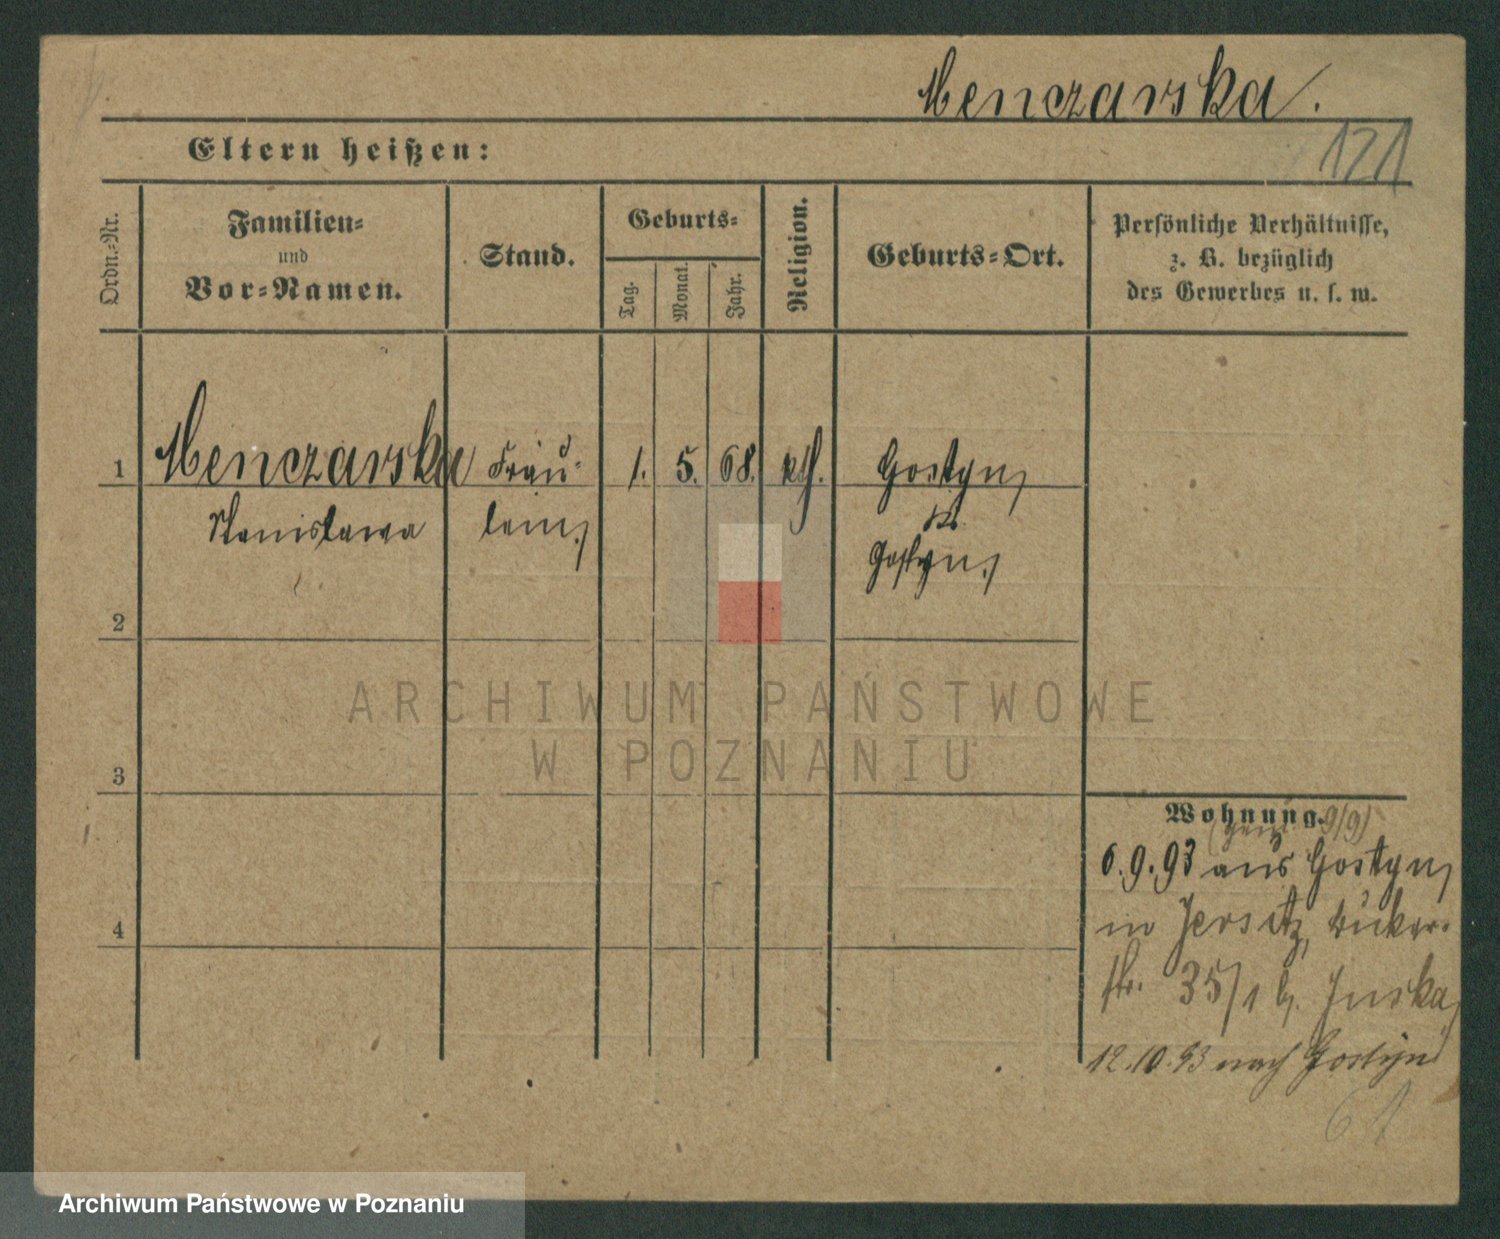 Menczarska.
121
Eltern heißen:
Ordn.-Nr.
Familien-
und
Vor-Namen.
Stand.
Geburts-
Tag.
Monat.
Jahr.
Religion.
Geburts-Ort.
Persönliche Verhältnisse,
z. B. bezüglich
des Gewerbes u. s. w.
1 Menczarska Fräu- 1. 5. 68. kth. Gostyn,
Stanislawa lein, Kr.
Gostyn,
2
3
4
ARCHIWUM PAŃSTWOWE
W POZNANIU
Wohnung.
9/9)
6.9.93 aus Gostyn,
in Jersitz,
str. 35/1 b.
12.10.93 nach Gostyn
Archiwum Państwowe w Poznaniu